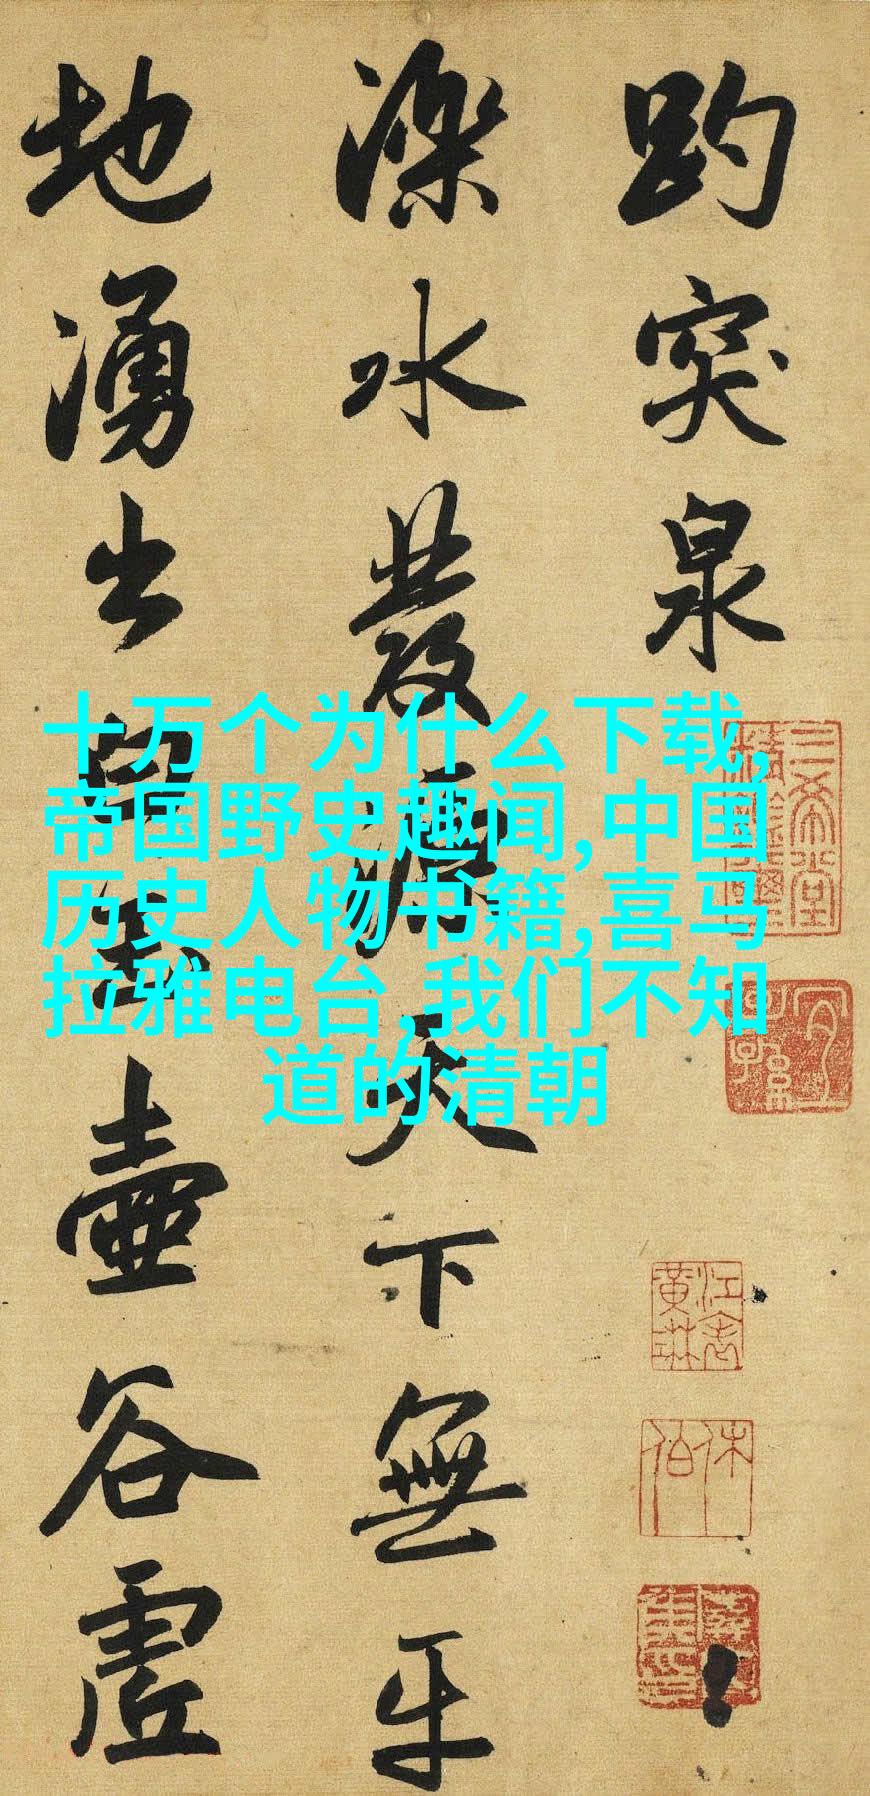 趵突泉
濼水發源天下無
地湧出白玉壺谷虛
三希堂
宜子孫
十万个为什么下载,
帝国野史趣闻,中国
历史人物书籍,喜马
拉雅电台,我们不知
道的清朝